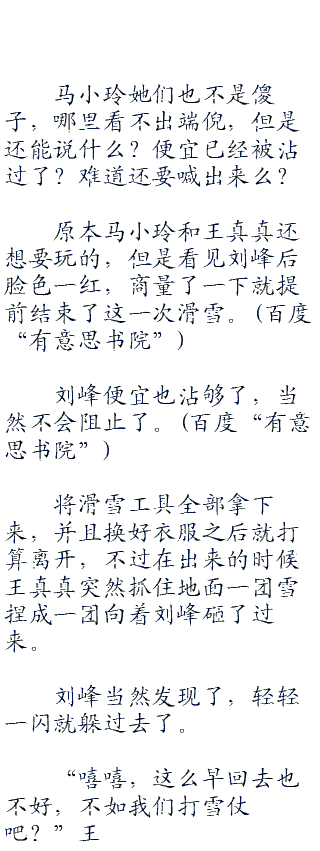 马小玲她们也不是傻
子，哪里看不出端倪，但是
还能说什么？便宜已经被沾
过了？难道还要喊出来么？
原本马小玲和王真真还
想要玩的，但是看见刘峰后
脸色一红，商量了一下就提
前结束了这一次滑雪。(百度
“有意思书院”)
刘峰便宜也沾够了，当
然不会阻止了。(百度“有意
思书院”)
将滑雪工具全部拿下
来，并且换好衣服之后就打
算离开，不过在出来的时候
王真真突然抓住地面一团雪
捏成一团向着刘峰砸了过
来。
刘峰当然发现了，轻轻
一闪就躲过去了。
“嘻嘻，这么早回去也
不好，不如我们打雪仗
吧？”王